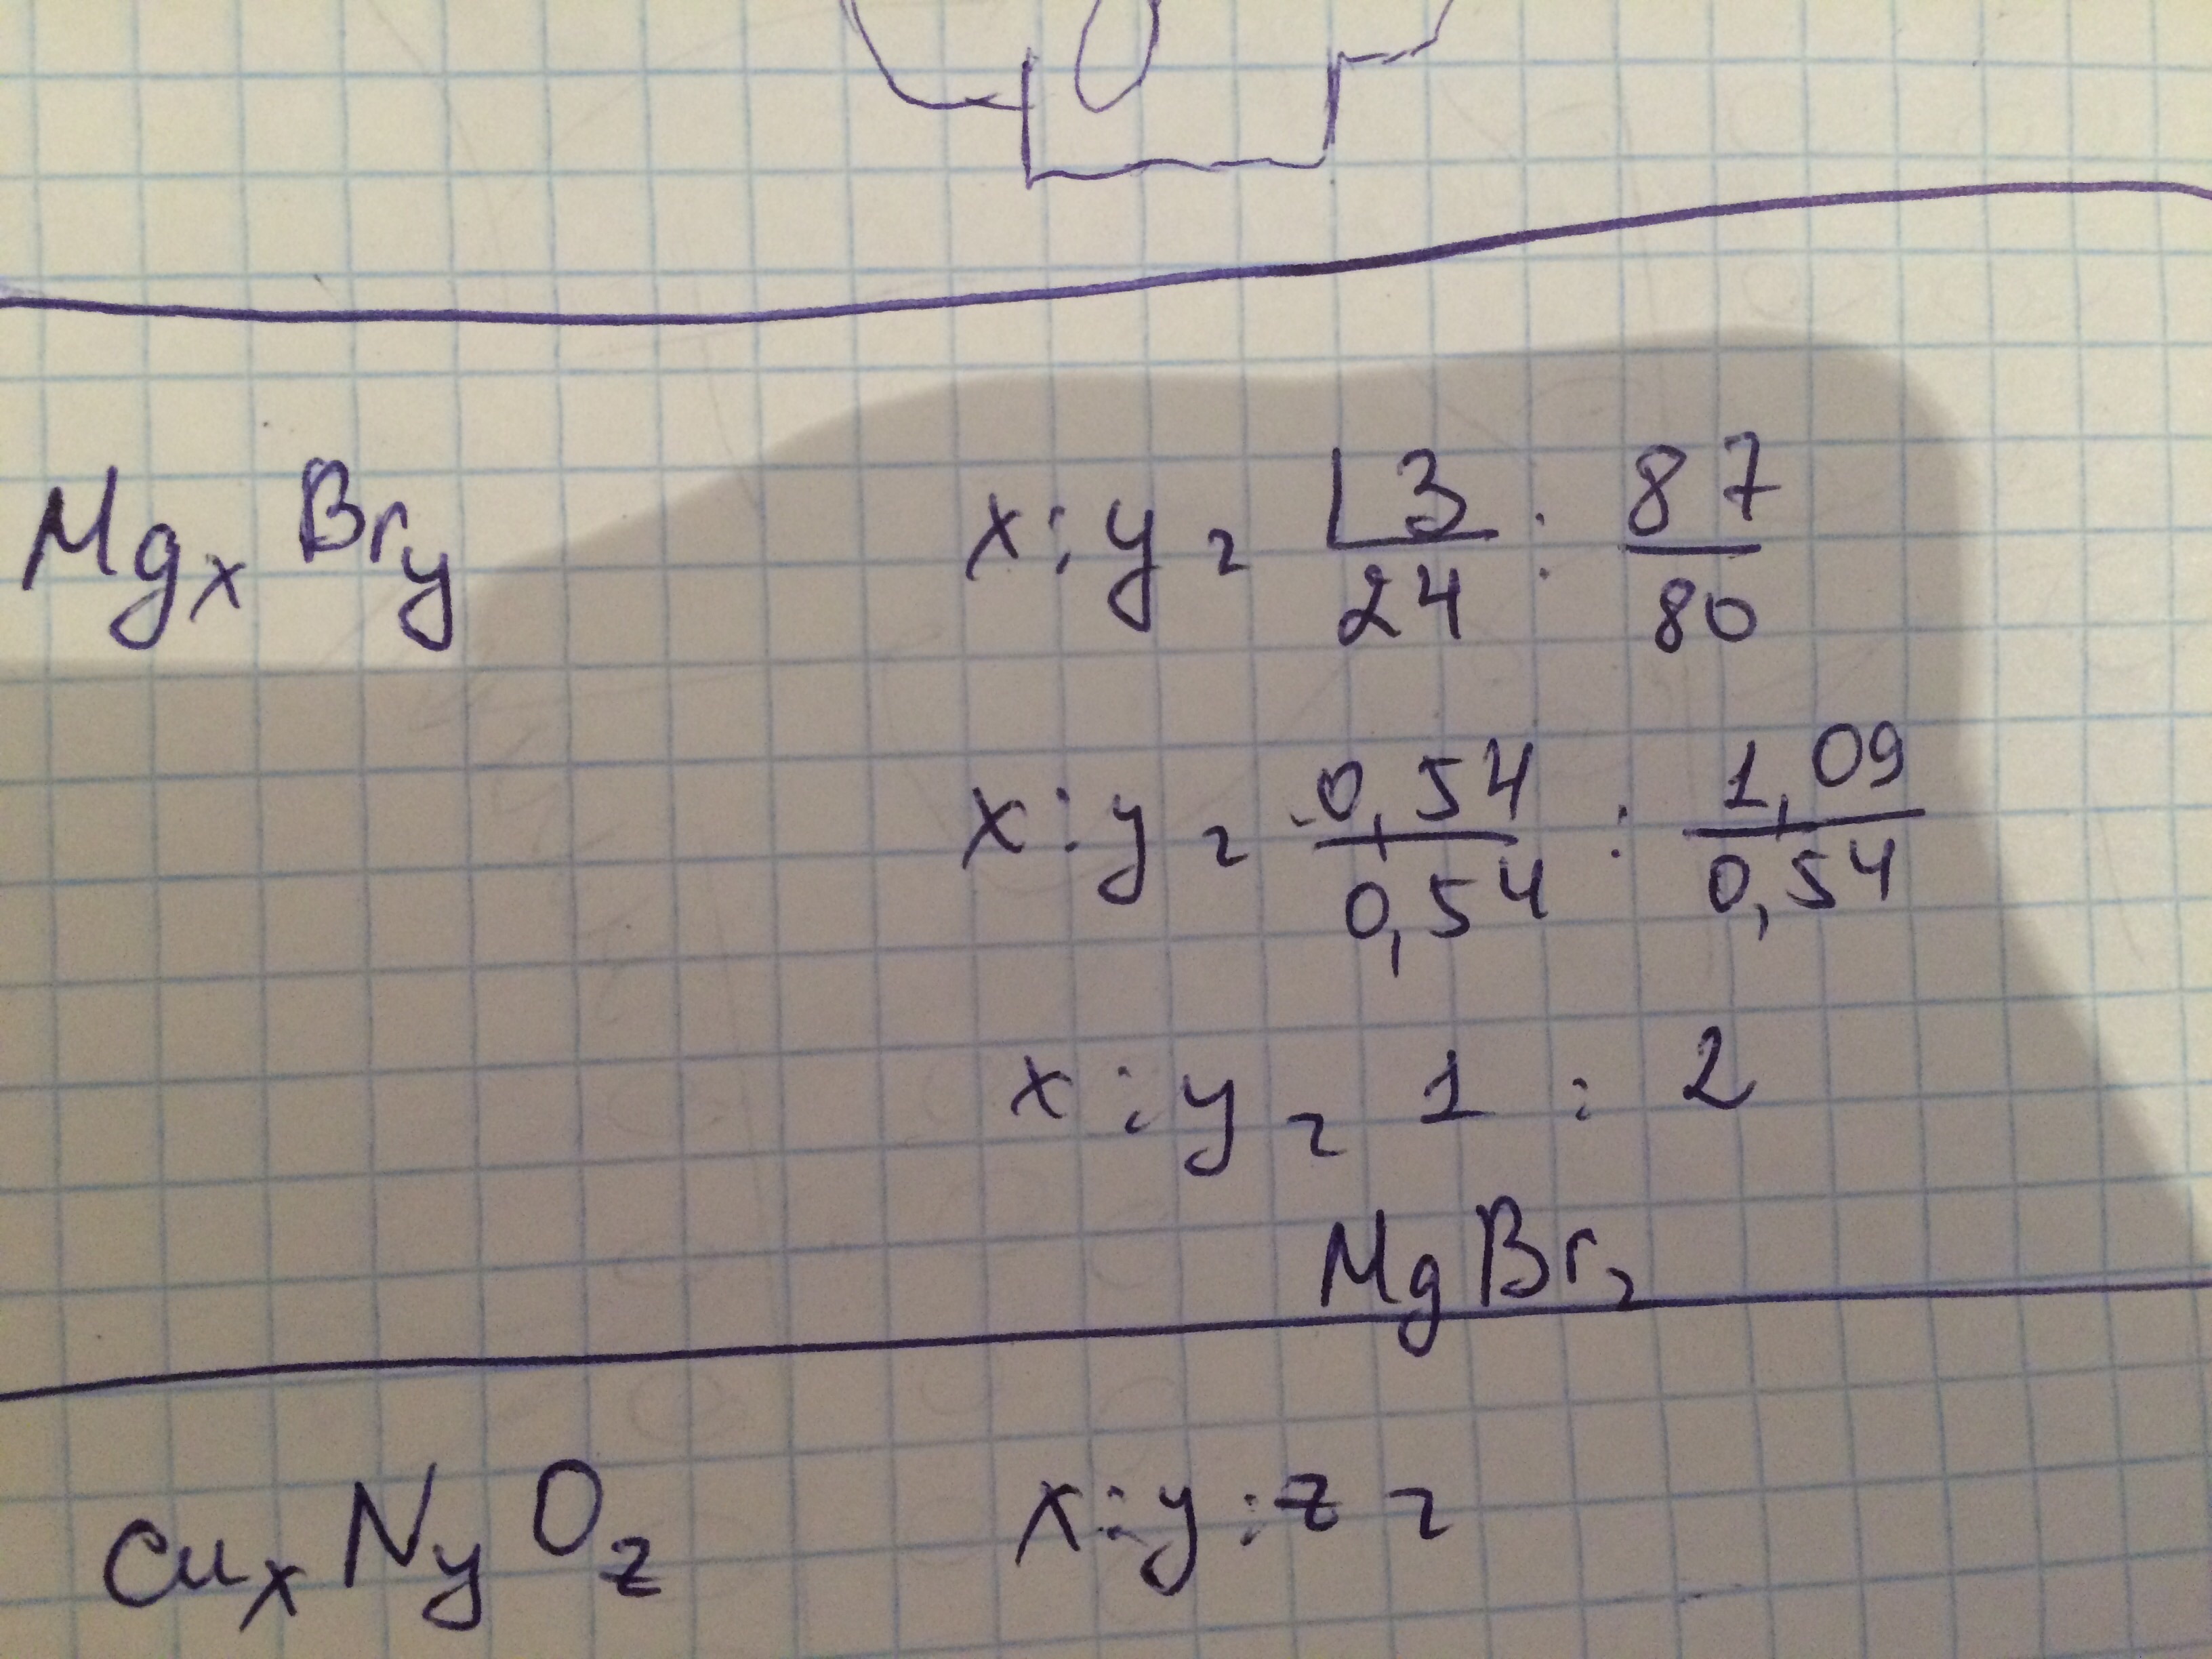 Mgₓ Brᵧ x : y = 13/24 : 87/80
x : y = 0,54/0,54 : 1,09/0,54
x : y = 1 : 2
MgBr₂
Cuₓ Nᵧ O_z x : y : z =